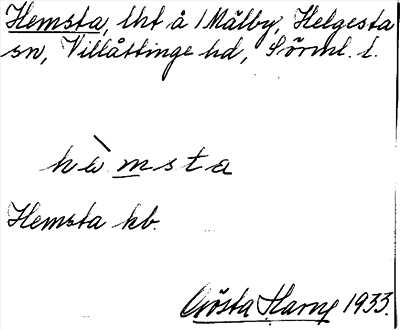 Hemsta, lht å 1 Mälby, Helgesta
sn, Villåttinge hd, Sörml. l.
hὰmsta
Hemsta kb.
Gösta Harng 1933.